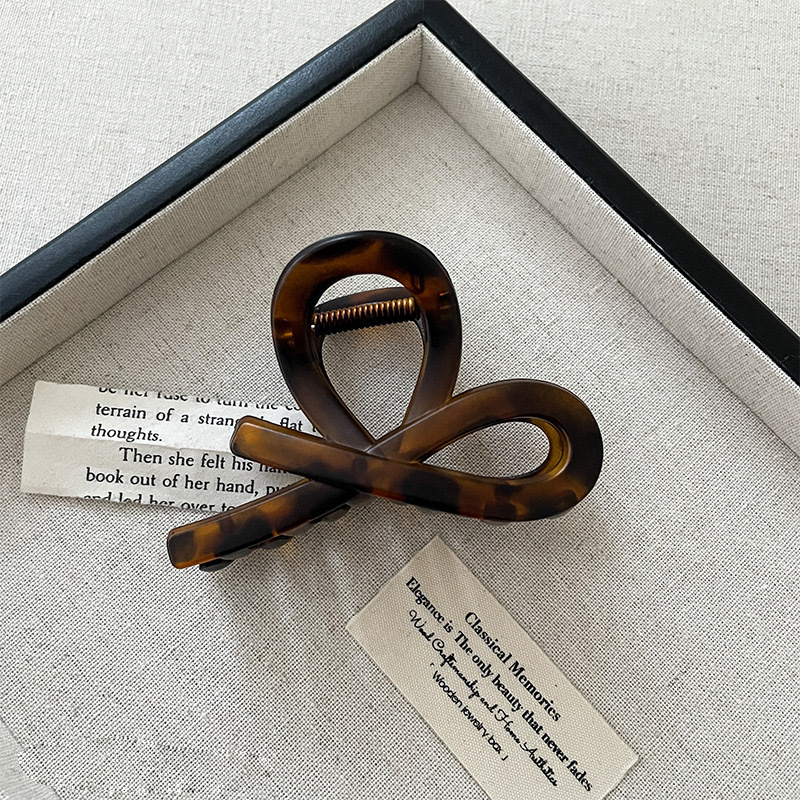 be her ruse to turn the co
terrain of a strang flat t
thoughts.
Then she felt his han
book out of her hand, pu
and led her over to
Classical Memories
Elegance is The only beauty that never fades
Wood Craftsmanship and Home Aesthetics
「Wooden jewelry box」